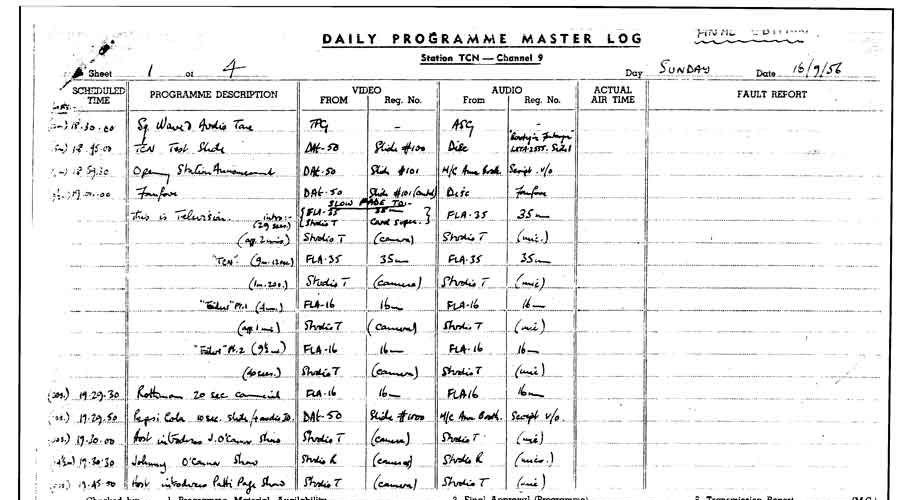 FINAL EDITION
DAILY PROGRAMME MASTER LOG
Station TCN — Channel 9
Sheet 1 of 4 Day SUNDAY Date 16/9/56
SCHEDULED TIME PROGRAMME DESCRIPTION VIDEO FROM Reg. No. AUDIO From Reg. No. ACTUAL AIR TIME FAULT REPORT
18.30.00 Sq. Wave & Audio Tone TPG - ASG -
18.45.00 TCN Test Slide DAL-50 Slide #100 Disc Side 1
18.59.30 Opening Station Announcement DAL-50 Slide #101 M/C Ann. Booth. Script. v/o
19.00.00 Fanfare DAL-50 Slide #101 (contd) Disc Fanfare
SLOW FADE TO:-
This is Television. intro:- (29 secs.) { FLA-35 35m } FLA-35 35m
{ Studio T Card Super. }
(app. 2 mins) Studio T (camera) Studio T (mic.)
"TCN" (9m. 12 sec) FLA-35 35m FLA-35 35m
(1m. 20s.) Studio T (camera) Studio T (mic)
Pt.1 FLA-16 16m FLA-16 16m
(app 1 min) Studio T (camera) Studio T (mic)
Pt.2 (9½m) FLA-16 16m FLA-16 16m
(40 secs.) Studio T (camera) Studio T (mic)
19.29.30 Rothman 20 sec commercial FLA-16 16m FLA16 16m
19.29.50 Pepsi Cola 10 sec. slide DAL-50 Slide #1000 M/C Ann Booth. Script v/o.
19.30.00 Host introduces J. O'Connor Show Studio T (camera) Studio T (mic)
19.30.30 Johnny O'Connor Show Studio R (camera) Studio R (mics.)
19.45.50 Host introduces Patti Page Show Studio T (camera) Studio T (mic)
Checked by: 1. Programme Material Availability 2. Final Approval (Programme) 3. Transmission Report (M.C.)